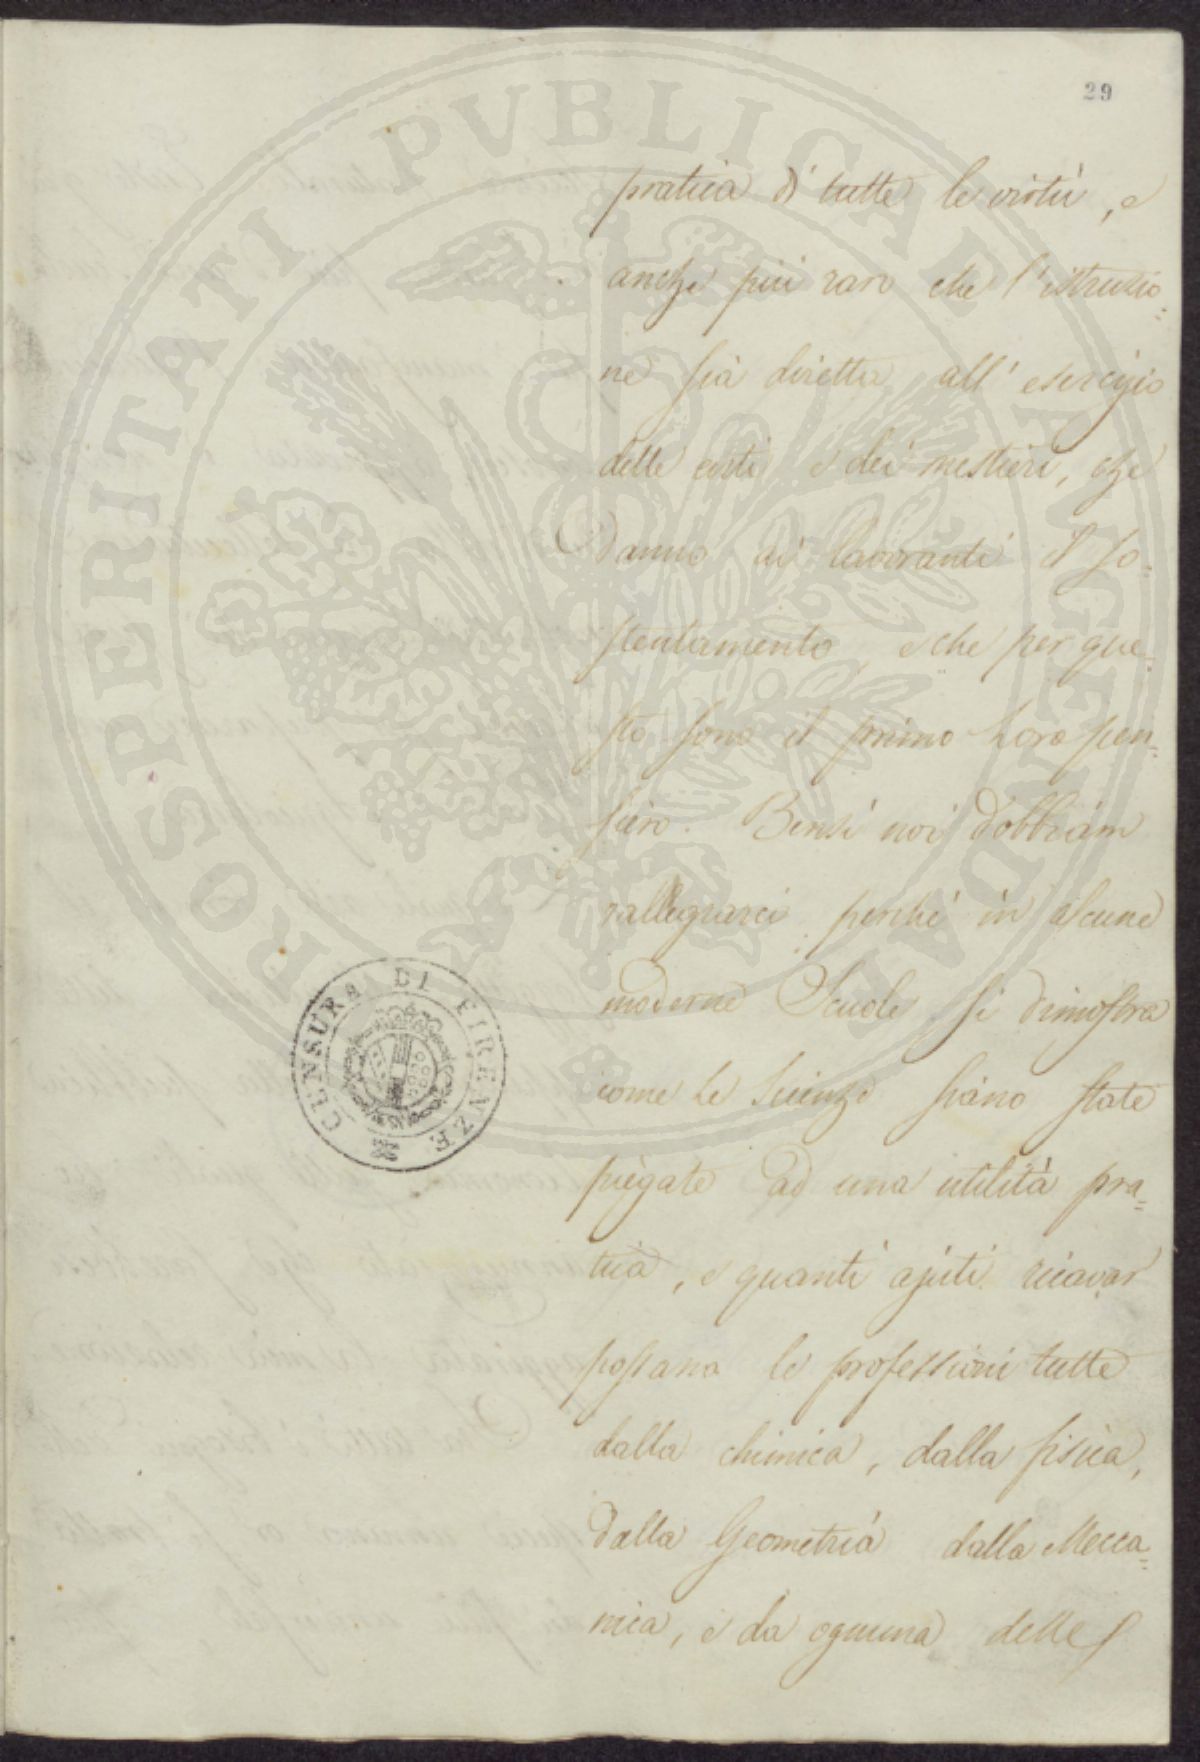 29
pratica di tutte le virtù, e
anche più raro che l'istruzio=
ne sia diretta all'esercizio
delle arti e dei mestieri, che
danno ai lavoranti il so=
stentamento, e che per que=
sto sono il primo Loro pen=
siero. Bensì noi dobbiam
rallegrarci perché in alcune
moderne Scuole si dimostra
come le Scienze siano state
piegate ad una utilità pra=
tica, e quanti ajuti ricavar
possano le professioni tutte
dalla chimica, dalla fisica,
dalla Geometria dalla Mecca=
nica, e da ognuna delle
CENSURA DI FIRENZE
PROSPERITATI PVBLICAE AVGENDAE